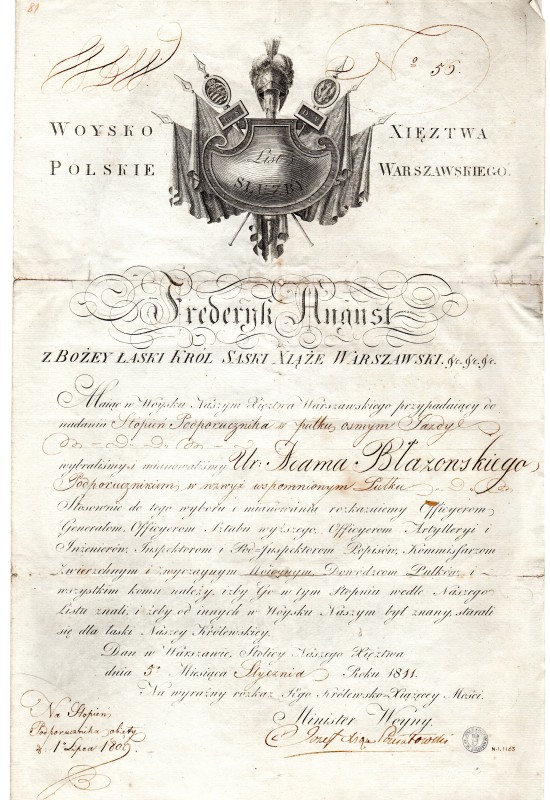 81
No 56.
WOYSKO XIĘZTWA
POLSKIE WARSZAWSKIEGO.
List
SŁUŻBY
Frederyk August
Z BOŻEY ŁASKI KROL SASKI XIĄŻE WARSZAWSKI. &c. &c. &c.
Maiąc w Woysku Naszym Xięztwa Warszawskiego przypadaiący do
nadania Stopień Podporucznika w pułku osmym Jazdy
wybraliśmy i mianowaliśmy Ur: Adama Błazonskiego
Podporucznikiem, w rzwyż wspomnionym Pułku
Stosownie do tego wyboru i mianowania rozkazuiemy Officyerom
Generałom, Officyerom Sztabu wyższego, Officyerom Artylleryi i
Inżenierów, Inspektorom i Pod-Inspektorom Popisów, Kommissarzom
Zwierzchnym i zwyczaynym Woiennym, Dowódzcom Pułków, i
wszystkim komu należy, iżby Go w tym Stopniu wedle Nászego
Listu ználi, i żeby od innych w Wóysku Naszym był znany, stárali
się dla łaski Nászey Królewskiey.
Dan w Warszawie, Stolicy Naszego Xięztwa
dnia 5o Miesiąca Stycznia Roku 1811.
Na wyraźny rozkaz Jego Królewsko-Xiążęcy Mości.
Minister Woyny.
Józef Xżę Poniatowski
Na Stopień
Podporucznika objęty
d: 1o Lipca 1809
N.I.1165